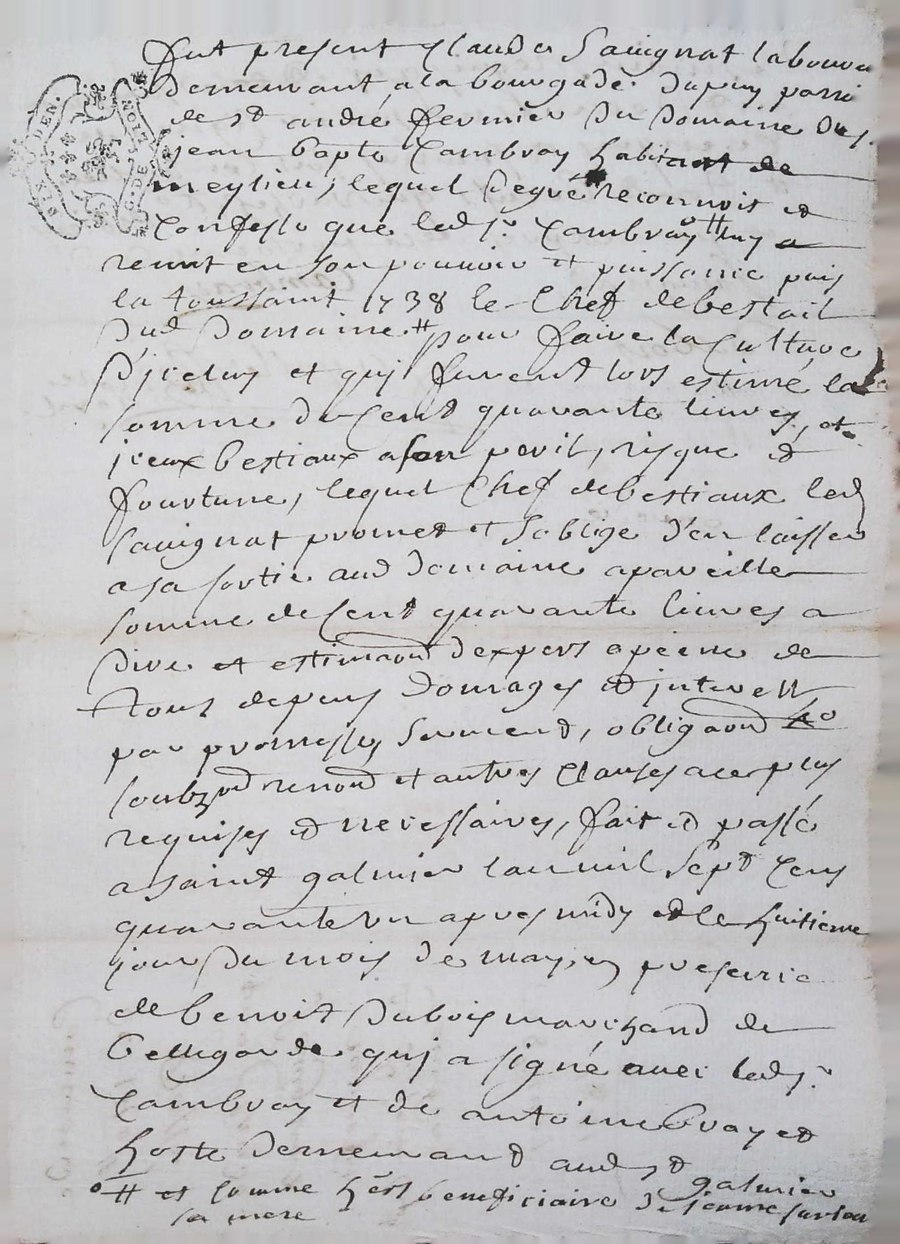 SIX DEN. G. DE LION
fut present Claude Sauignat laboureur
demeurant a la bourgade Dupuy parrisse
de st andré fermier Du Domaine Du sr.
jean bapte Cambray habitant de
meylieu, lequel De gré reconnoit et
Confesse que led sr. Cambray # luy a
remit en son pouuoir et puissance puis
la toussaint 1738 le Chef de bestail
Dud Domaine # pour faire la Culture
D'jceluy et qui furent lors estimé la
somme de Cent quarante liures, et
jceux bestiaux a son peril, risque et
fourtune, lequel Chef de bestiaux led
Sauignat promet et s'oblige d'en laisser
a sa sortie aud Domaine a pareille
somme de Cent quarante liures a
Dire et estimaon d'expers a peine de
tous depens Domages et jnterests
par promesses, serment, obligaon
soubzon renon et autres Clauses a ce plus
requises et necessaires, fait et passé
a saint galmier lan mil sept Cens
quarante vn apres midy et le huitieme
jour Du mois de may, en presence
de benoit Dubois marchand de
bellegarde qui a signé auec led sr.
Cambray et de antoine Bray et
hoste Demeurant aud st
galmier
# et comme hers beneficiaire de jeanne
sa mere